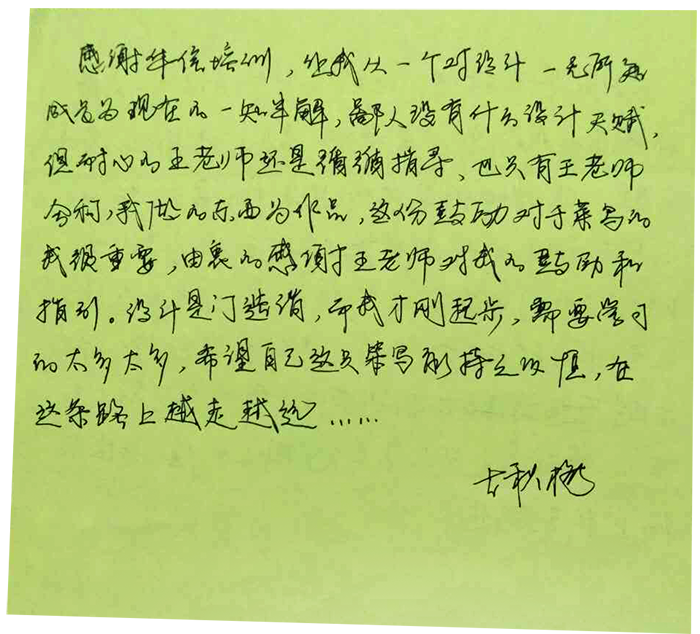 感谢华信培训，让我从一个对设计一无所知
成长为现在的一知半解，鄙人没有什么设计天赋，
但耐心的王老师还是循循指导、也只有王老师
会称，我做的东西为作品，这份鼓励对于菜鸟的
我很重要，由衷的感谢王老师对我的鼓励和
指引。设计是门造诣，而我才刚起步，需要学习
的太多太多，希望自己这只菜鸟能持之以恒，在
这条路上越走越远……
秋